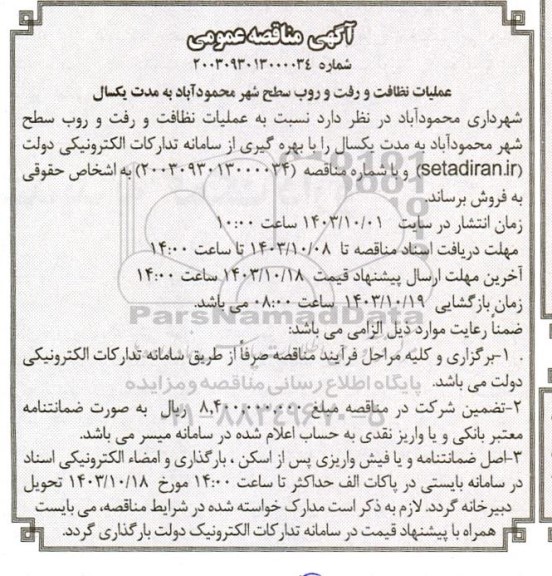 آگهی مناقصه عمومی
شماره ۲۰۰۳۰۹۳۰۱۳۰۰۰۰۳۴
عملیات نظافت و رفت و روب سطح شهر محمودآباد به مدت یکسال
شهرداری محمودآباد در نظر دارد نسبت به عملیات نظافت و رفت و روب سطح
شهر محمودآباد به مدت یکسال را با بهره گیری از سامانه تدارکات الکترونیکی دولت
(setadiran.ir) و با شماره مناقصه (۲۰۰۳۰۹۳۰۱۳۰۰۰۰۳۴) به اشخاص حقوقی
به فروش برساند.
زمان انتشار در سایت ۱۴۰۳/۱۰/۰۱ ساعت ۱۰:۰۰
مهلت دریافت اسناد مناقصه تا ۱۴۰۳/۱۰/۰۸ تا ساعت ۱۴:۰۰
آخرین مهلت ارسال پیشنهاد قیمت ۱۴۰۳/۱۰/۱۸ ساعت ۱۴:۰۰
زمان بازگشایی ۱۴۰۳/۱۰/۱۹ ساعت ۰۸:۰۰ می باشد.
ParsNamadData
ضمناً رعایت موارد ذیل الزامی می باشد:
۱-برگزاری و کلیه مراحل فرآیند مناقصه صرفاً از طریق سامانه تدارکات الکترونیکی
دولت می باشد.
پایگاه اطلاع رسانی مناقصه و مزایده
۲-تضمین شرکت در مناقصه مبلغ ۸,۴۰۰,۰۰۰,۰۰۰ ریال به صورت ضمانتنامه
۰۲۱-۸۸۳۴۹۶۷۰-۵
معتبر بانکی و یا واریز نقدی به حساب اعلام شده در سامانه میسر می باشد.
۳-اصل ضمانتنامه و یا فیش واریزی پس از اسکن ، بارگذاری و امضاء الکترونیکی اسناد
در سامانه بایستی در پاکات الف حداکثر تا ساعت ۱۴:۰۰ مورخ ۱۴۰۳/۱۰/۱۸ تحویل
دبیرخانه گردد. لازم به ذکر است مدارک خواسته شده در شرایط مناقصه، می بایست
همراه با پیشنهاد قیمت در سامانه تدارکات الکترونیک دولت بارگذاری گردد.